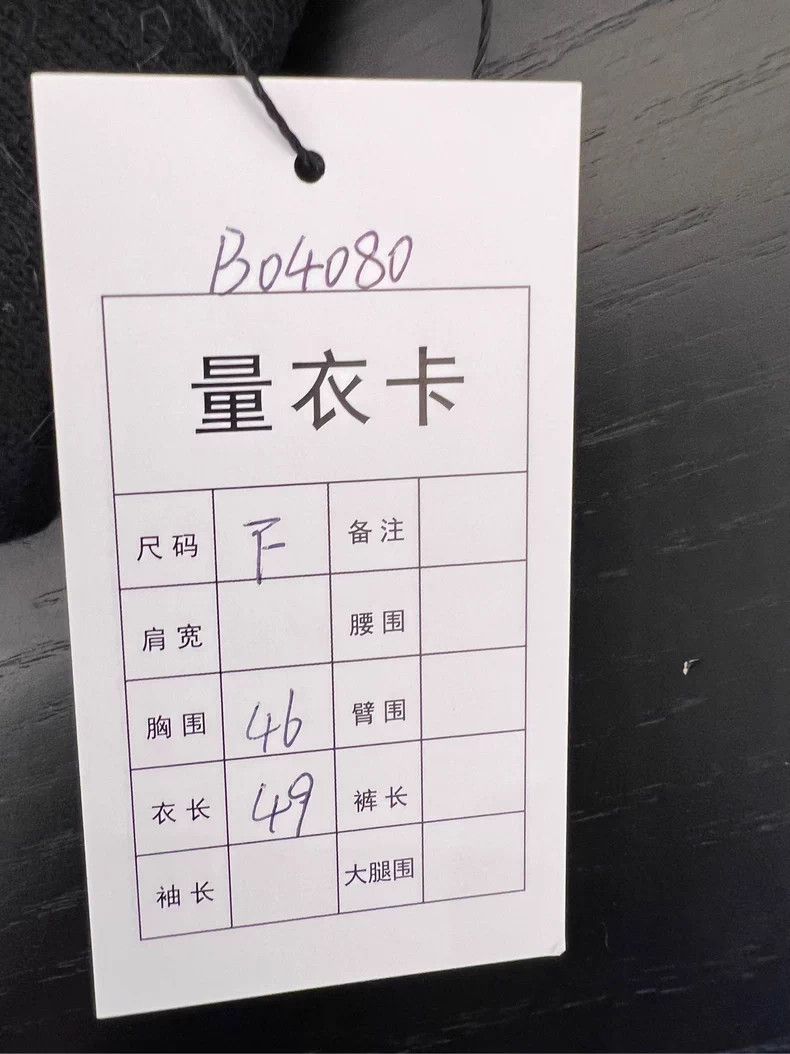 B04080
量衣卡
尺码 F 备注
肩宽 腰围
胸围 46 臂围
衣长 49 裤长
袖长 大腿围